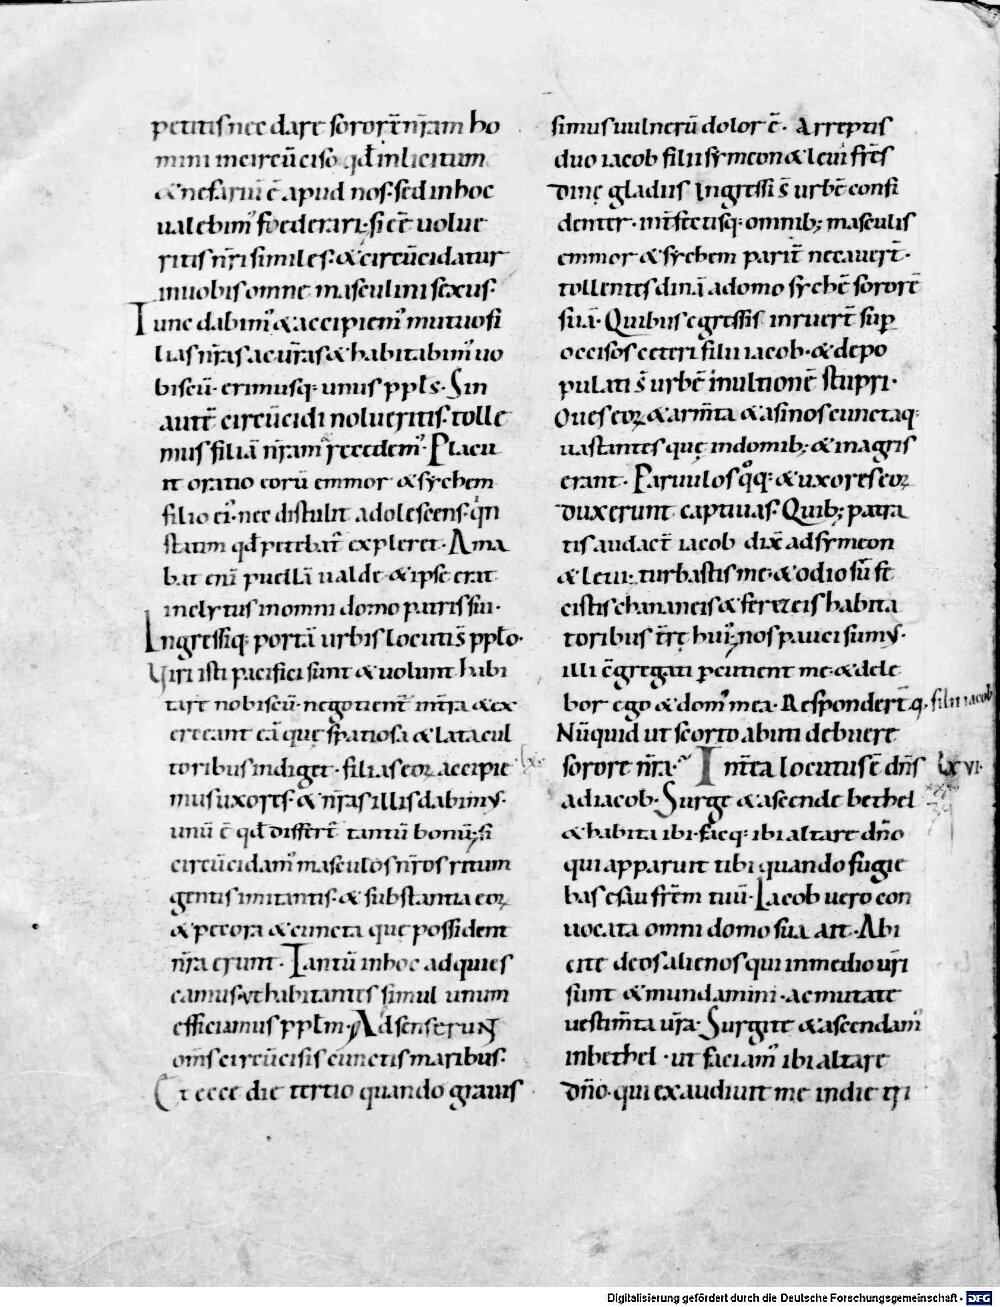 petitis nec dare sororē nr̄am ho
mini incircūciso qđ inlicitum
& nefariū ē apud nos. sed in hoc
ualebim' foederari. si eē uolue
ritis nr̄i similes. & circūcidatur
in uobis omne masculini sexus.
Tunc dabim' & accipiem' mutuo fi
lias nr̄as ac ur̄as & habitabim' uo
biscū. erimusq; unus ppl̄s. Sin
autē circūcidi nolueritis. tolle
mus filiā nr̄am & recedem'. Placu
it oratio eorū emmor & sychem
filio ei'. nec distulit adolescens. qn̄
statim qđ petebat̄ expleret. Ama
bat eni puellā ualde & ipse erat
inclytus in omni domo patris sui.
Ingressiq; portā urbis locuti s̄ ppl̄o.
Uiri isti pacifici sunt & uolunt habi
tare nobiscū. negotient̄ in tr̄a & ex
erceant eā quę spatiosa & lata cul
toribus indiget. filias eoꝝ accipie
mus uxores. & nr̄as illis dabimus.
unū ē qđ differt̄ tantū bonū. si
circūcidam' masculos nr̄os ritum
gentis imitantis. & substantia eoꝝ
& pecora & cuncta quę possident
nr̄a erunt. Tantū in hoc adquies
camus. ut habitantes simul unum
efficiamus ppl̄m. Adsenserunt
om̄s circūcisis cunctis maribus.
Et ecce die tertio quando grauis
simus uulnerū dolor ē. Arreptis
duo iacob filii symeon & leui fr̄es
dinę gladiis Ingressi s̄ urbē confi
denter. int̄fectisq; omnib; masculis
emmor & sychem parit̄ necauer̄.
tollentes dinā a domo sychē sororē
suā. Quibus egressis inruer̄ sup̄
occisos ceteri filii iacob. & depo
pulati s̄ urbē in ultionē stupri.
Oues eoꝝ & arm̄ta & asinos cunctaq;
uastantes quę in domib; & in agris
erant. Paruulos qͦq; & uxores eoꝝ
duxerunt captiuas. Quib; patra
tis audact̄ iacob dix̄ ad symeon
& leui. turbastis me. & odiosū fe
cistis chananeis & ferezeis habita
toribus tr̄ę hui'. nos pauci sumus.
illi c̄gregati p̄cutient me. & dele
bor ego & dom' mea. Responder̄ q; filii iacob
Nūquid ut scorto abuti debuere
sorore nr̄a. In̄t̄ea locutus ē dn̄s lxvi.
ad iacob. Surge & ascende bethel
& habita ibi. facq; ibi altare dn̄o
qui apparuit tibi quando fugie
bas esau fr̄em tuū. Iacob uero con
uocata omni domo sua ait. Abi
cite deos alienos qui in medio ur̄i
sunt & mundamini. ac mutate
uestim̄ta ur̄a. Surgite & ascendam'
in bethel. ut faciam' ibi altare
dn̄o. qui exaudiuit me in die tri
Digitalisierung gefördert durch die Deutsche Forschungsgemeinschaft - DFG